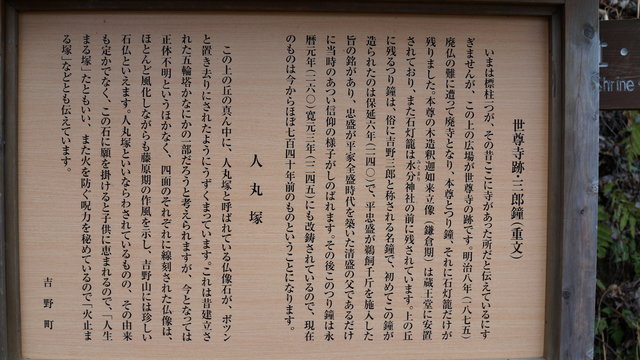 世尊寺跡・三郎鐘(重文)
いまは標柱一つが、その昔ここに寺があった所だと伝えているにす
ぎませんが、この上の広場が世尊寺の跡です。明治八年(一八七五)
廃仏の難に遭って廃寺となり、本尊とつり鐘、それに石灯籠だけが
残りました。本尊の木造釈迦如来立像(鎌倉期)は蔵王堂に安置
されており、また石灯籠は水分神社の前に残されています。上の丘
に残るつり鐘は、俗に吉野三郎と称される名鐘で、初めてこの鐘が
造られたのは保延六年(一一四〇)で、平忠盛が鵜飼千斤を施入した
旨の銘があり、忠盛が平家全盛時代を築いた清盛の父であるだけ
に当時のあつい信仰の様子がしのばれます。その後このつり鐘は永
暦元年(一一六〇)寛元三年(一二四五)にも改鋳されているので、現在
のものは今からほぼ七百四十年前のものということになります。
人丸塚
この上の丘の真ん中に、人丸塚と呼ばれている仏像石が、ポツン
と置き去りにされたようにうずくまっています。これは昔建立さ
れた五輪塔かなにかの一部だろうと考えられますが、今となっては
正体不明というほかなく、四面のそれぞれに線刻された仏像は、
ほとんど風化しながらも藤原期の作風を示し、吉野山には珍しい
石仏といえます。人丸塚といいならわされているものの、その由来
も定かでなく、この石に願を掛けると子供に恵まれるので、「人生
まる塚」だともいい、また火を防ぐ呪力を秘めているので「火止ま
る塚」などとも伝えています。
吉野町
hrine